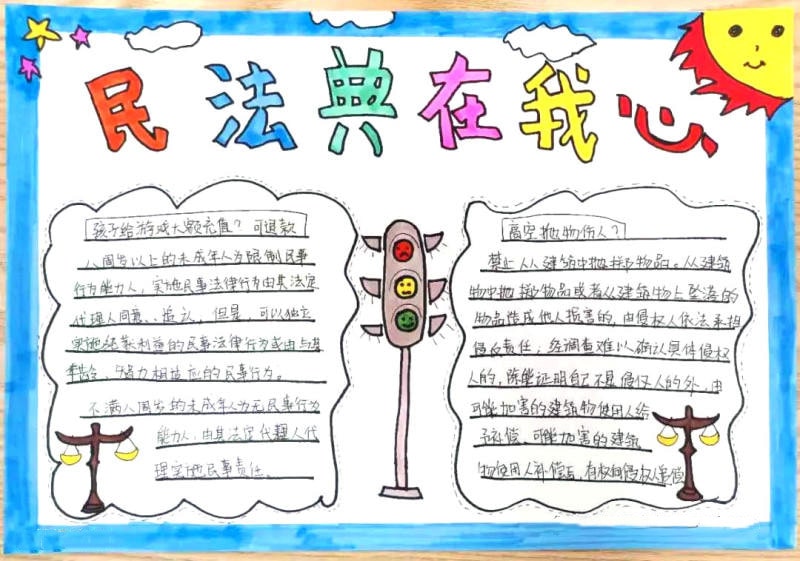 民法典在我心
孩子给游戏大额充值？可退款
八周岁以上的未成年人为限制民事
行为能力人，实施民事法律行为由其法定
代理人同意、追认，但是，可以独立
实施纯获利益的民事法律行为或由与其
年龄、智力相适应的民事行为。
不满八周岁的未成年人为无民事行为
能力人，由其法定代理人代
理实施民事责任。
高空抛物伤人？
禁止从从建筑中抛掷物品。从建筑
物中抛掷物品或者从建筑物上坠落的
物品造成他人损害的，由侵权人依法承担
侵权责任；经调查难以确认具体侵权
人的，除能证明自己不是侵权人的外，由
可能加害的建筑物使用人给
予补偿。可能加害的建筑
物使用人补偿后，有权向侵权人追偿